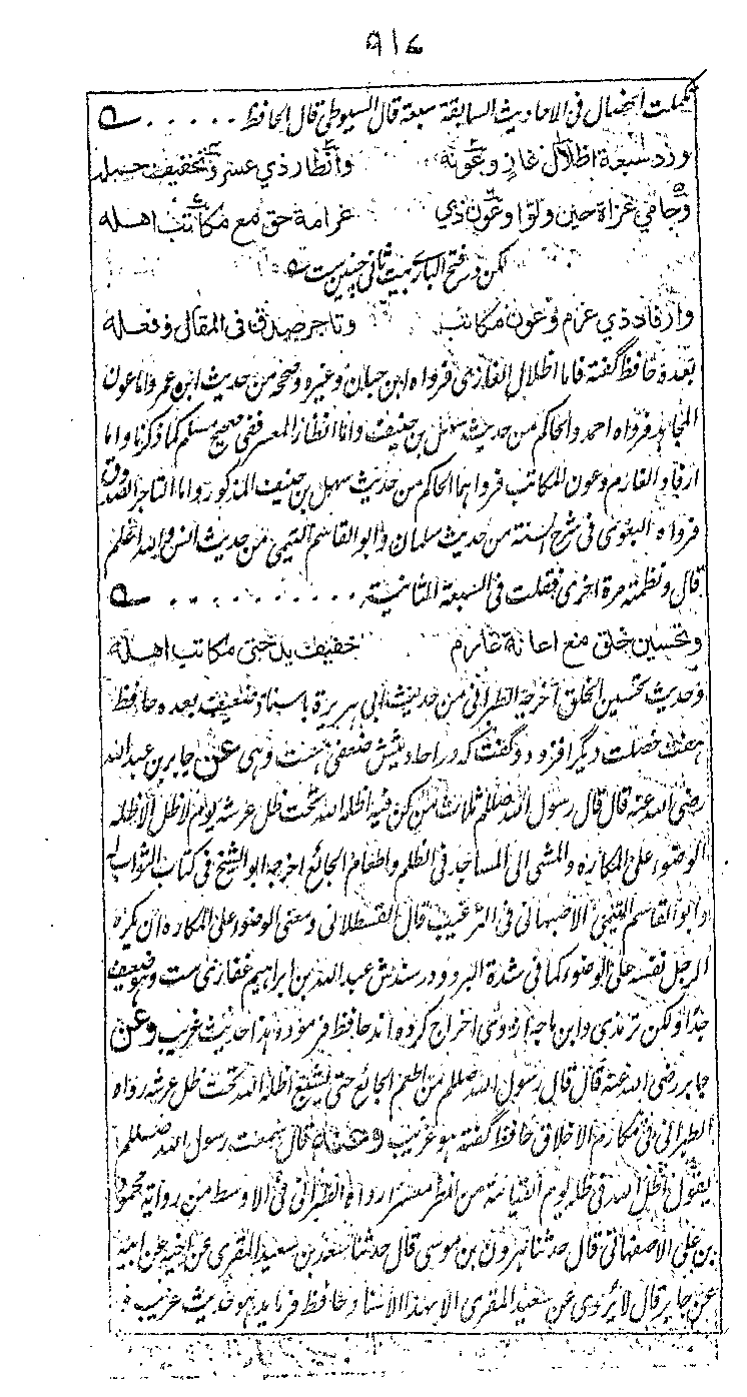 ۹۱۷
کملت الخصال فی الاحادیث السابقة سبعة قال السیوطی قال الحافظ
وزد سبعة اظلال غاز وعونه وانظار ذی عسر وتخفیف حمله
وحامی غزاة حین ولوا وعون ذی غرامة حق مع مکاتب اهله
لکن در فتح الباری بیت ثانی چنین ست
وارفاد ذی غرم وعون مکاتب وتاجر صدق فی المقال وفعله
بعده حافظ گفته فاما اظلال الغازی فرواه ابن حبان وغیره وصححه من حدیث ابن عمر واما عون
المجاهد فرواه احمد والحاکم من حدیث سهل بن حنیف واما انظار المعسر ففی صحیح مسلم کما ذکرنا واما
ارفاد الغارم وعون المکاتب فرواهما الحاکم من حدیث سهل بن حنیف المذکور واما التاجر الصدوق
فرواه البغوی فی شرح السنة من حدیث سلمان وابو القاسم التیمی من حدیث انس والله اعلم
قال ونظمته مرة اخری فقلت فی السبعة الثانیة
وتحسین خلق مع اعانة غارم خفیف ید حتی مکاتب اهله
وحدیث تحسین الخلق اخرجه الطبرانی من حدیث ابی هریرة باسناد ضعیف بعده حافظ
هفت خصلت دیگر افزوده وگفت که در احادیثش ضعفی هست وهی عن جابر بن عبد الله
رضی الله عنه قال قال رسول الله صللم ثلاث من کن فیه اظله الله تحت ظل عرشه یوم لا ظل الا ظله
الوضوء علی المکاره والمشی الی المساجد فی الظلم واطعام الجائع اخرجه ابو الشیخ فی کتاب الثواب له
وابو القاسم التیمی الاصبهانی فی الترغیب قال القسطلانی ومعنی الوضوء علی المکاره ان یکره
الرجل نفسه علی الوضوء کما فی شدة البرد ودر سندش عبد الله بن ابراهیم غفاری ست وهو ضعیف
جدا ولکن ترمذی وابن ماجه از وی اخراج کرده اند حافظ فرموده هذا حدیث غریب وعن
جابر رضی الله عنه قال قال رسول الله صللم من اطعم الجائع حتی یشبع اظله الله تحت ظل عرشه رواه
الطبرانی فی مکارم الاخلاق حافظ گفته هو غریب وعنه قال سمعت رسول الله صللم
یقول اظل الله فی ظله یوم القیامة من انظر معسرا رواه الطبرانی فی الاوسط من روایة محمود
بن علی الاصفهانی قال حدثنا هرون بن موسی قال حدثنا سعد بن سعید المقری عن اخیه عن ابیه
عن جابر قال لا یروی عن سعید المقری الا بهذا الاسناد وحافظ فرماید هو حدیث غریب